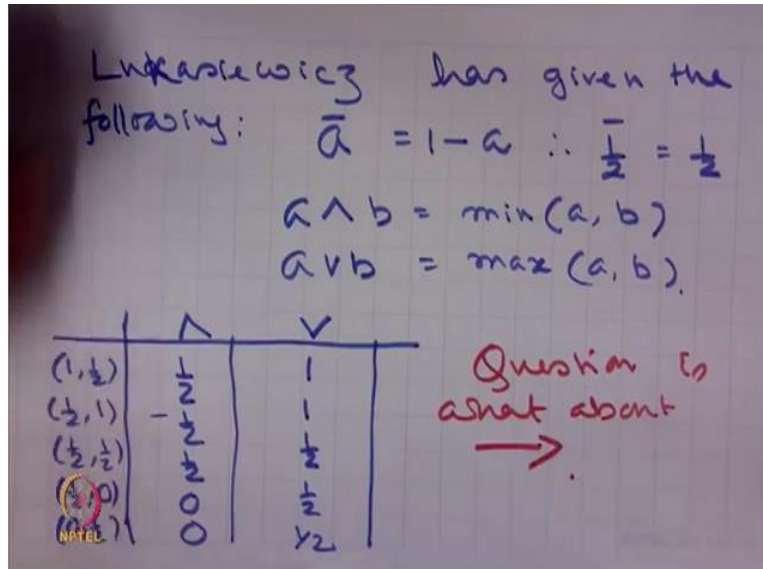 Lukasiewicz has given the
following: ā = 1 - a ∴ ½̄ = ½
a ∧ b = min (a, b)
a ∨ b = max (a, b).
∧ ∨
(1, ½) ½ 1
(½, 1) - ½ 1
(½, ½) ½ ½
0) 0 ½
0 1/2
Question is
what about
→ .
NPTEL